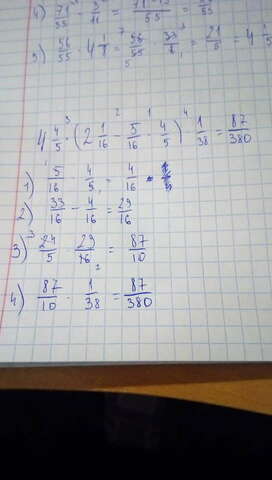 4) 71/55 - 3/11 = 71-15/55 = 56/55
5) 56/55 · 4 1/8 = 56/55 · 33/8 = 21/5 = 4 1/5
4 4/5 · (2 1/16 - 5/16 · 4/5) · 1/38 = 87/380
1) 5/16 · 4/5 = 4/16
2) 33/16 - 4/16 = 29/16
3) 24/5 · 29/16 = 87/10
4) 87/10 · 1/38 = 87/380